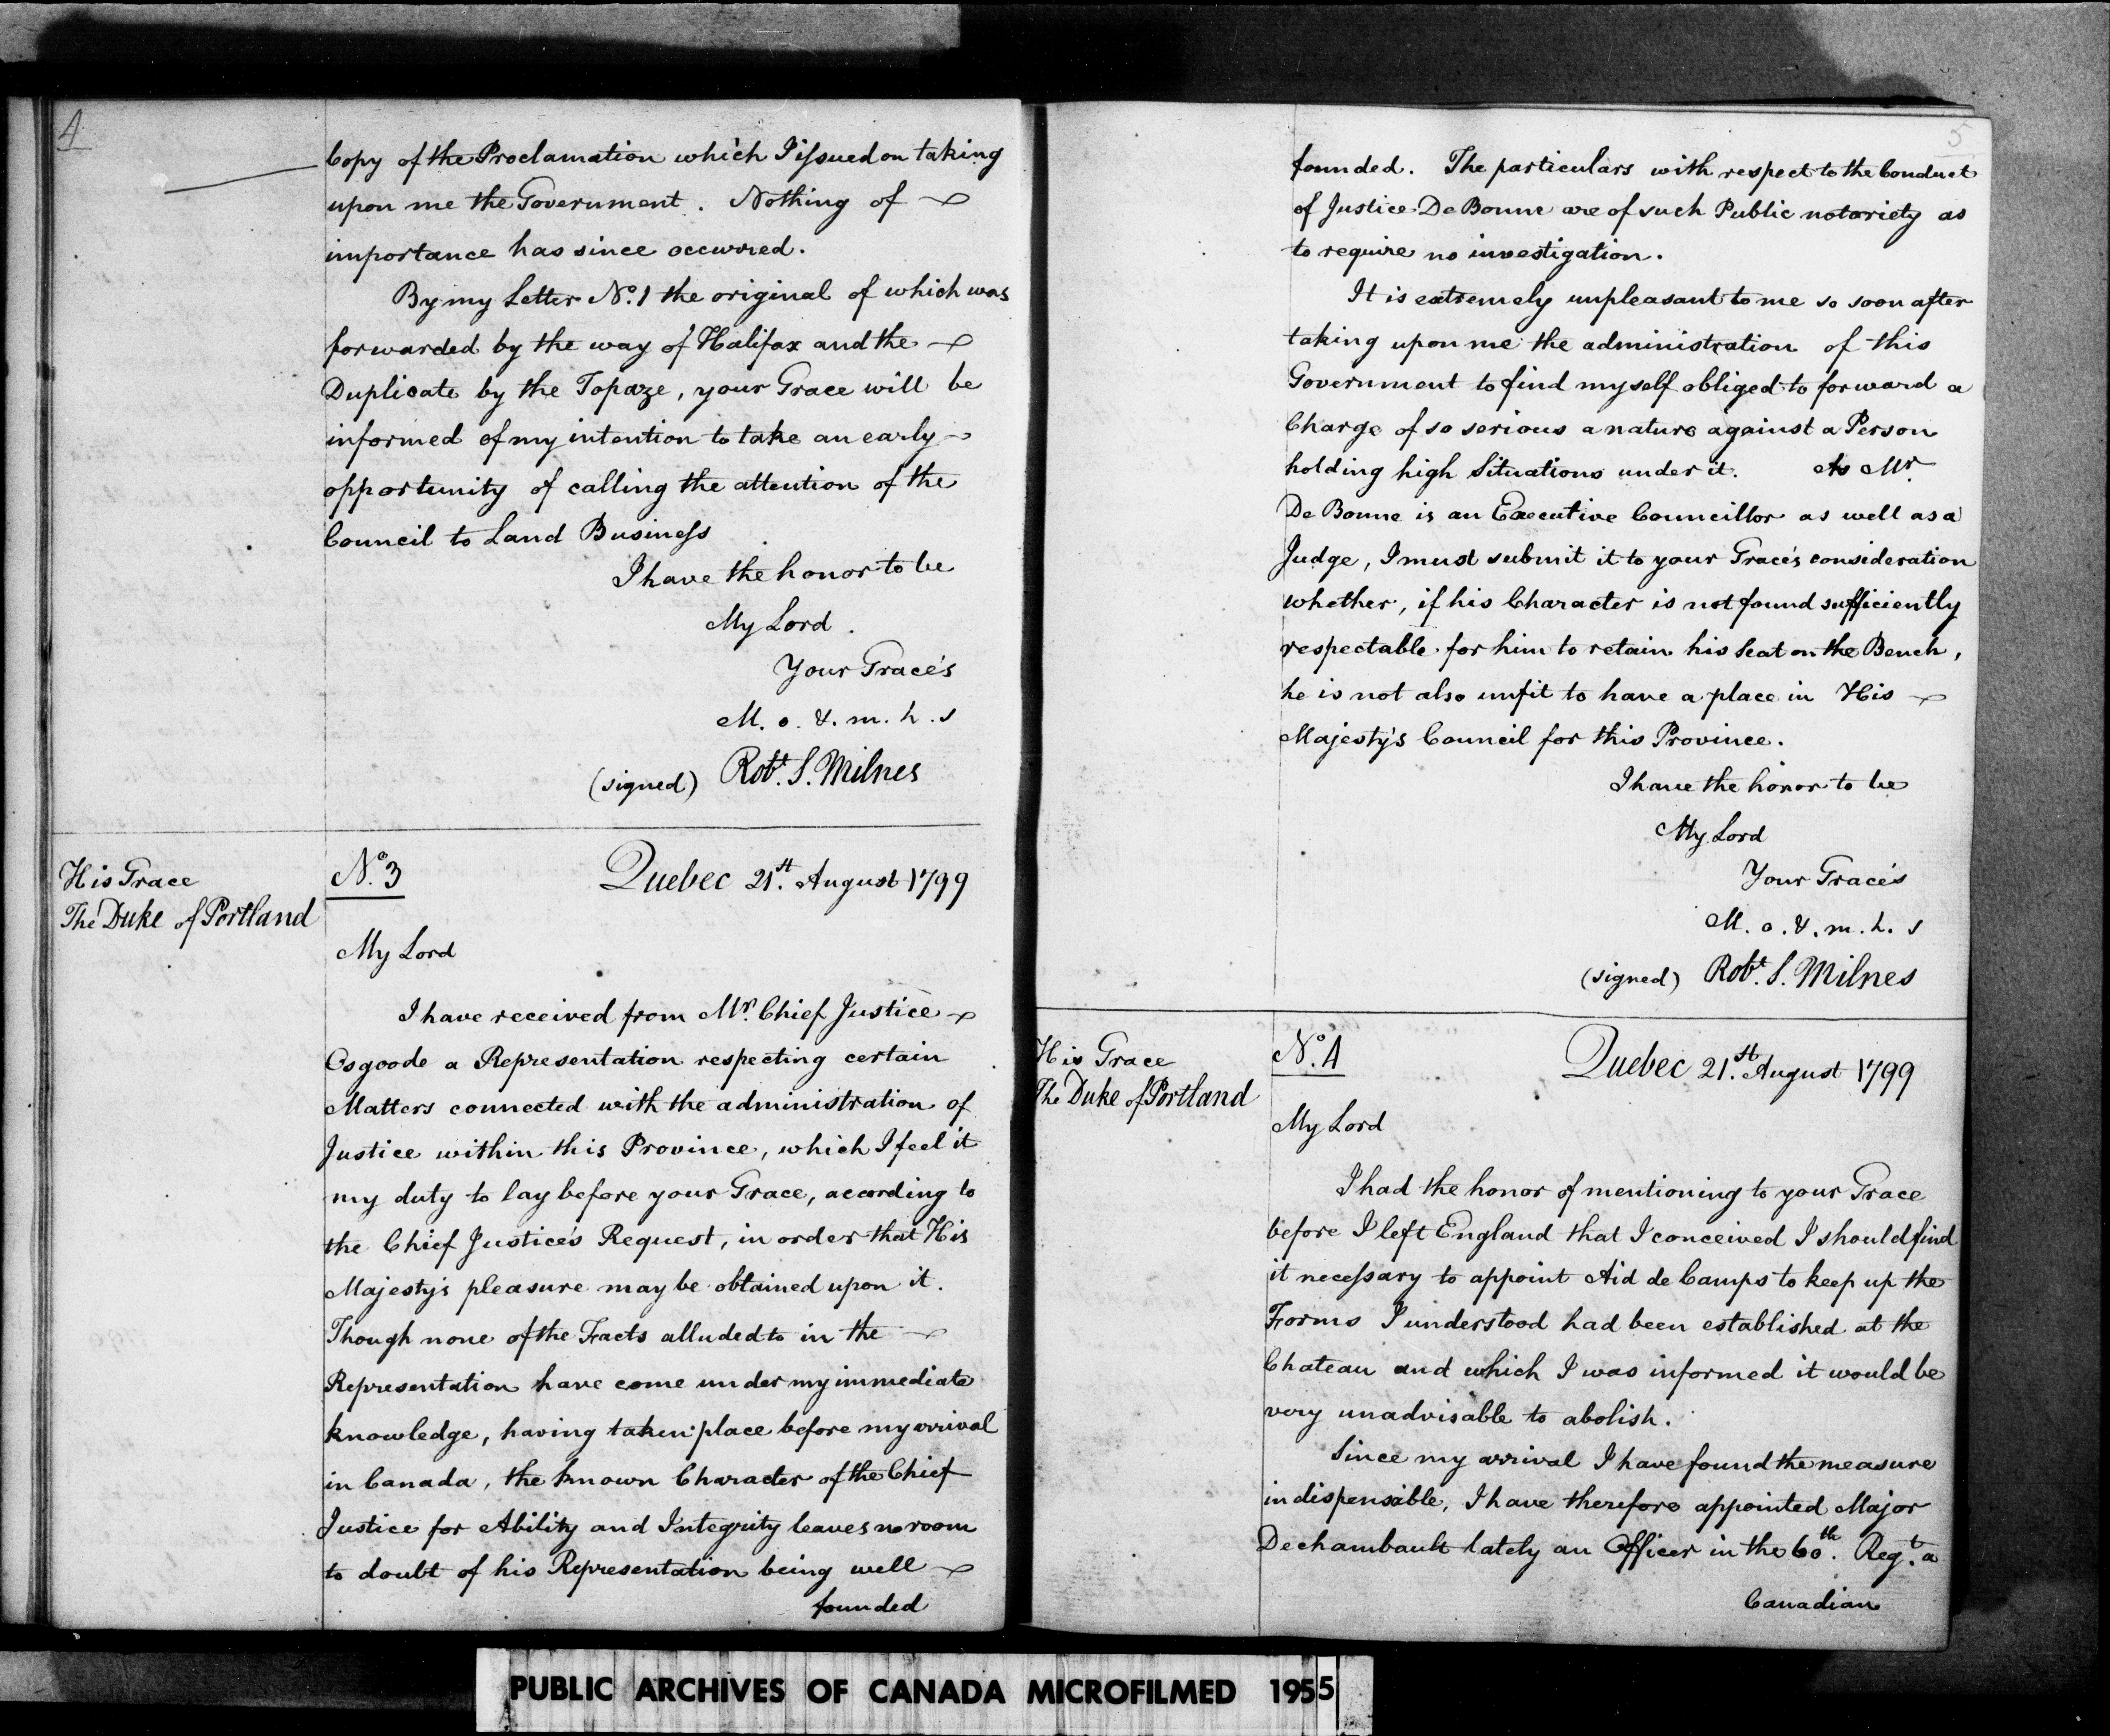 4
Copy of the Proclamation which I issued on taking
upon me the Government. Nothing of
importance has since occurred.
By my Letter No. 1 the original of which was
forwarded by the way of Halifax and the
Duplicate by the Topaze, your Grace will be
informed of my intention to take an early
opportunity of calling the attention of the
Council to Land Business
I have the honor to be
My Lord
Your Grace's
M. o. &. m. h. s
(signed) Robt. S. Milnes
His Grace
The Duke of Portland
No. 3 Quebec 21st. August 1799
My Lord
I have received from Mr. Chief Justice
Osgoode a Representation respecting certain
Matters connected with the administration of
Justice within this Province, which I feel it
my duty to lay before your Grace, according to
the Chief Justice's Request, in order that His
Majesty's pleasure may be obtained upon it.
Though none of the Facts alluded to in the
Representation have come under my immediate
knowledge, having taken place before my arrival
in Canada, the known Character of the Chief
Justice for Ability and Integrity leaves no room
to doubt of his Representation being well
founded
5
founded. The particulars with respect to the Conduct
of Justice De Bonne are of such Public notoriety as
to require no investigation.
It is extremely unpleasant to me so soon after
taking upon me the administration of this
Government to find myself obliged to forward a
Charge of so serious a nature against a Person
holding high Situations under it. As Mr.
De Bonne is an Executive Councillor as well as a
Judge, I must submit it to your Grace's consideration
whether, if his Character is not found sufficiently
respectable for him to retain his Seat on the Bench,
he is not also unfit to have a place in His
Majesty's Council for this Province.
I have the honor to be
My Lord
Your Grace's
M. o. &. m. h. s
(signed) Robt. S. Milnes
His Grace
The Duke of Portland
No. 4 Quebec 21st. August 1799
My Lord
I had the honor of mentioning to your Grace
before I left England that I conceived I should find
it necessary to appoint Aid de Camps to keep up the
Forms I understood had been established at the
Chateau and which I was informed it would be
very unadvisable to abolish.
Since my arrival I have found the measure
indispensible, I have therefore appointed Major
Dechambault lately an Officer in the 60th. Regt. a
Canadian
PUBLIC ARCHIVES OF CANADA MICROFILMED 1955